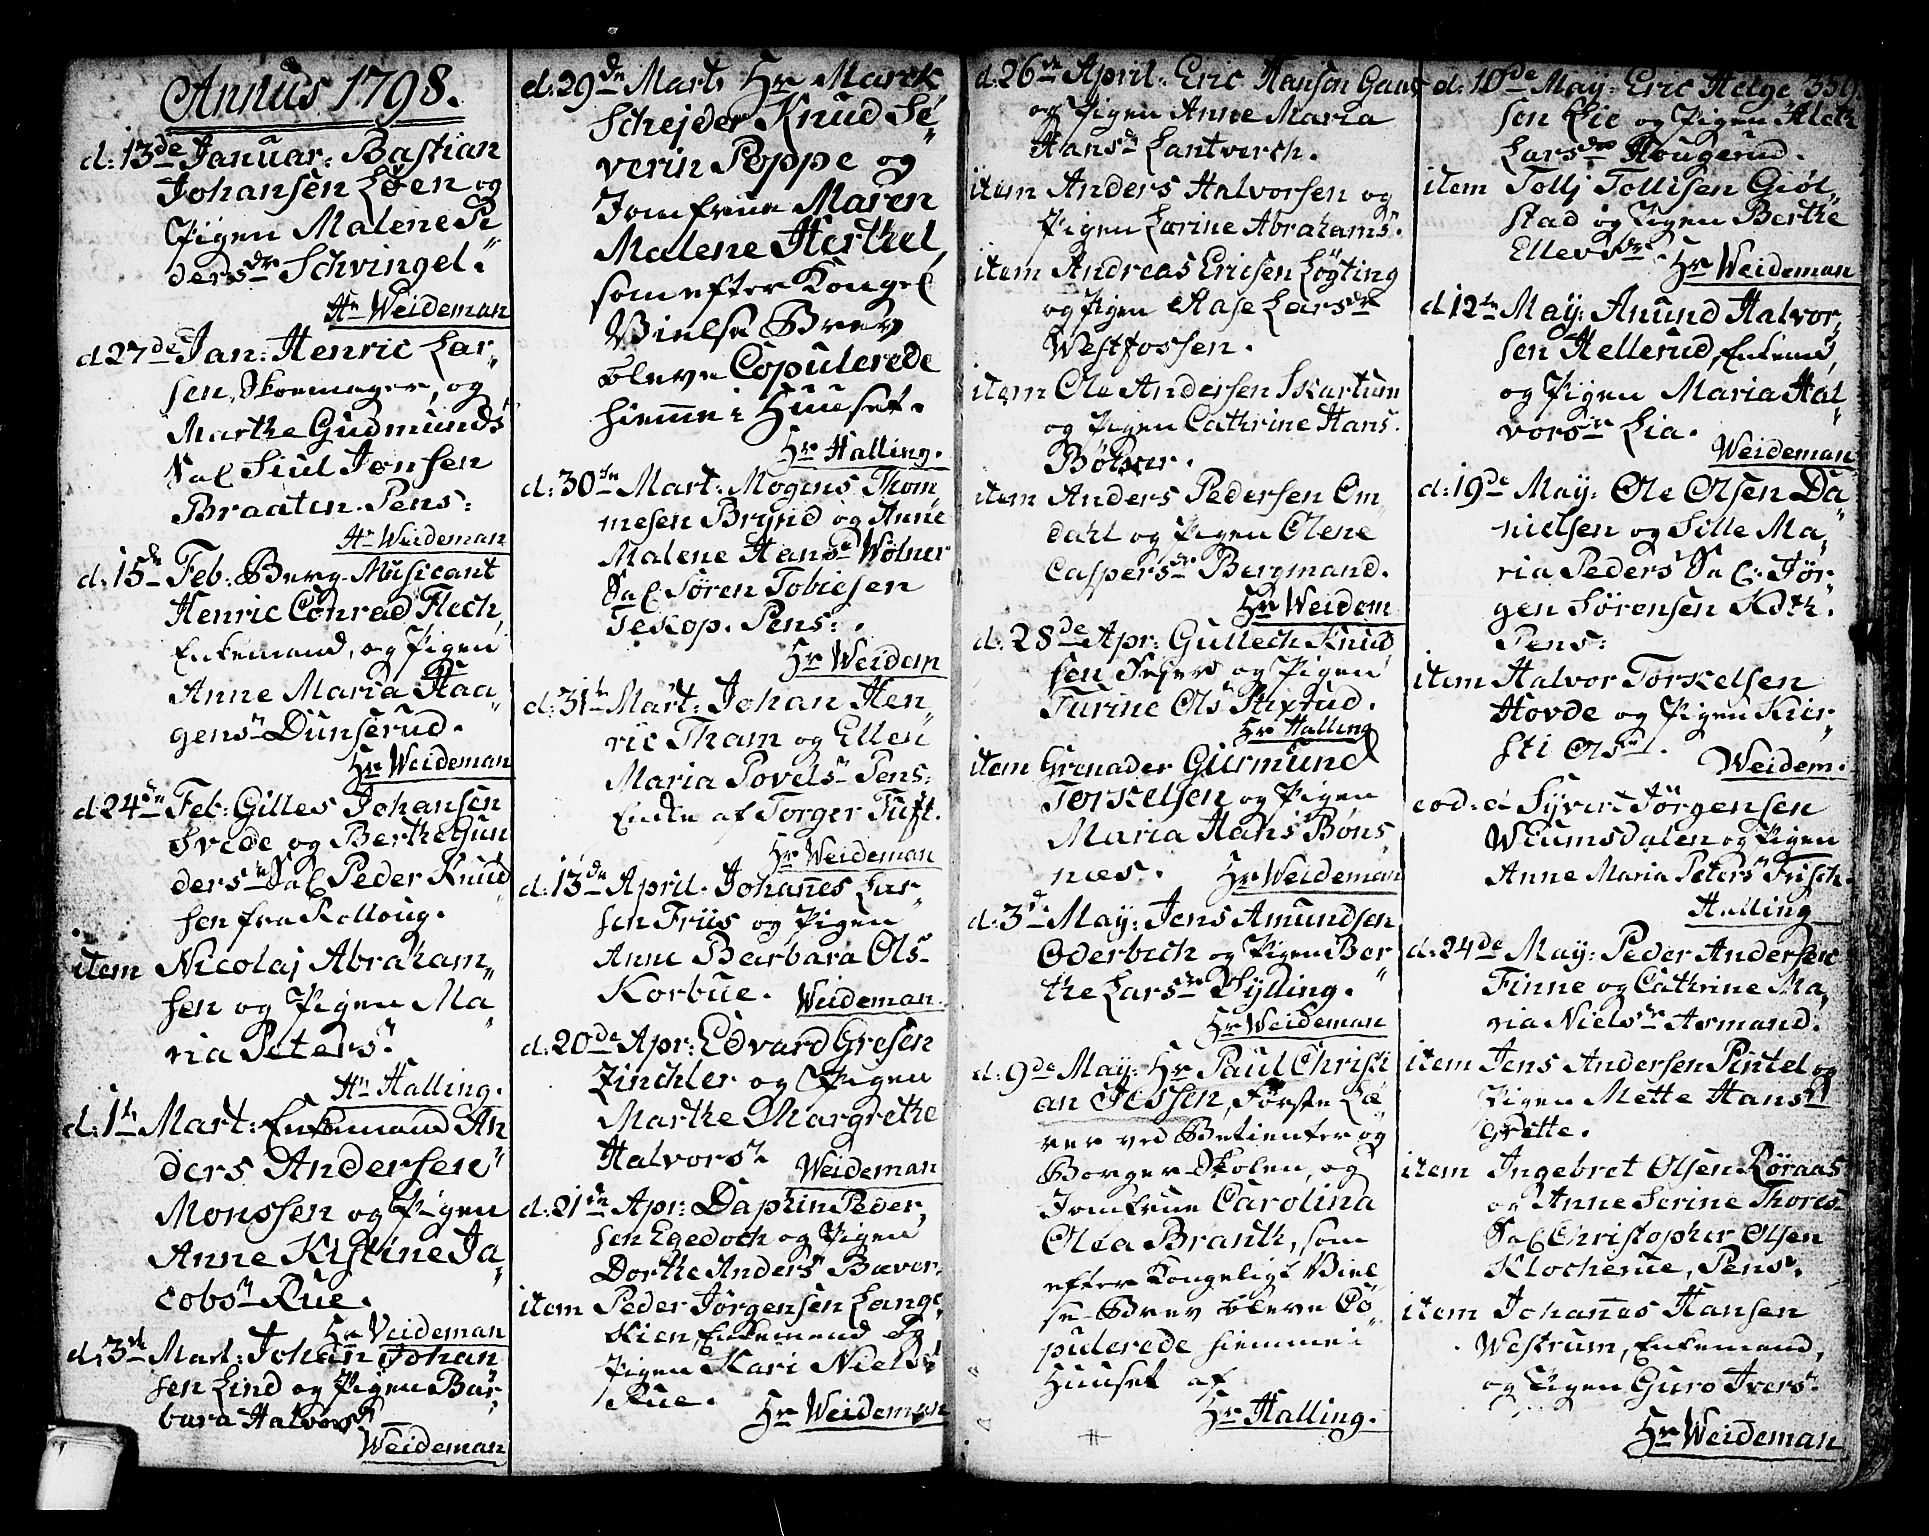 Annus 1798.
d: 13de Januar: Bastian
Johansen Løen og
Pigen Malene Pe
dersdr Schvingel.
Hr Weideman
d 27de Jan: Henric Lar„
sen, Skoemager, og
Marthe Gudmunds
Sal Siul Jonsen
Braaten. Pens:
Hr Weideman
d: 15de Feb: Berg-Musicant
Henric Conrad Flech,
Enkemand, og Pigen
Anne Maria Haa„
gensdr Dunserud.
Hr Weideman
d: 24de Feb: Gilles Johansen
Svede og Berthe Gun
dersdr Sal Peder Knud
sen fra Kolloug.
item Nicolaj Abraham„
sen og Pigen Ma„
ria Petersdr
Hr Halling.
d: 1te Mart: Enkemand An
ders Andersen
Monssen og Pigen
Anne Kistine Ja„
cobsdr Rue.
Hr Weideman
d: 3de Mart: Johan Johan
sen Lind og Pigen Bar„
bara Halvorsdr
Weideman
d: 29de Mart: Hr Marck
Schejder Knud Se„
verin Poppe og
Jomfrue Maren
Malene Herthel,
som efter Kongel
Vielse Brev
bleve Copulerede
hiemme i Huuset.
Hr Halling.
d: 30te Mart: Mogens Thom„
mesen Brynd og Anne
Malene Hansdr Wølner
Sal Søren Tobiesen
Teskop. Pens:
Hr Weidem
d: 31te Mart: Johan Hen„
ric Tham og Ellen
Maria Povelsdr Pens:
Enke af Torger Tuft.
Hr Weideman
d: 13de April. Johannes Lar„
sen Friis og Pigen
Anne Barbara Ols-
Korbue. Weideman.
d: 20de Apr: Edvard Gresen
Zinchler og Pigen
Marthe Margrethe
Halvorsdr Weideman
d: 21de Apr: Daphin Peder„
sen Egedoch og Pigen
Dorthe Anders Bævor
item Peder Jørgensen Lange
Kien, Enkemand og
Pigen Kari Niels
Rue. Hr Weideman
d: 26de April: Eric Hansen Gaas
og Pigen Anne Maria
Hansdr Lantverch.
item Anders Halvorsen og
Pigen Karine Abrahams.
item Andreas Ericsen Løgting
og Pigen Aase Larsdr
Westfossen.
item Ole Andersen Skartum
og Pigen Cathrine Hans.
Bølver.
item Anders Pedersen Om„
dahl og Pigen Olene
Caspersdr Bergmand.
Hr Weidem
d: 28de Apr: Gullech Knud
sen Fejer og Pigen
Turine Ols Stixrud.
Hr Halling
item Grenader Gusmund
Torkelsen og Pigen
Maria Hans Bøns„
næs. Hr Weideman
d: 3de May: Jens Amundsen
Oderbech og Pigen Ber„
the Larsdr Sylling.
Hr Weideman
d: 9de May: Hr Paul Christi
an Jessen, Første Læ„
rer ved Betienter og
Borger Skolen, og
Jomfrue Carolina
Olea Branth, som
efter Kongeligt Viel
se-Brev bleve Co„
pulerede hiemme i
Huuset af
Hr Halling.
d: 10de May: Eric Helge 359.
sen Lie og Pigen Aleth
Larsdr Hougerud.
item Tollj Tollisen Giøl„
stad og Pigen Berthe
Ellevsdr. Hr Weideman
d 12te May: Anund Halvor„
sen Hellerud, Enkemd,
og Pigen Maria Hal„
vorsdr Lia. Weideman
d: 19de May: Ole Olsen Da„
nielsen og Sille Ma„
ria Peders Sal: Jør„
gen Sørensen Koth.
Pens:
item Halvor Torkelsen
Hovde og Pigen Kier„
sti Olsdr.
Weidem.
eod: d Syver Jørgensen
Wiumsdalen og Pigen
Anne Maria Peters Frisch.
Halling
d: 24de May: Peder Andersen
Finne og Cathrine Ma„
ria Nielsdr Asmand.
item Jens Andersen Pintel og
Pigen Mette Hansdr
Grette.
item Ingebret Olsen Røraas
og Anne Serine Thores
Sal Christopher Olsen
Klocherue, Pens.
item Johannes Hansen
Westrum, Enkemand,
og Pigen Guro Ivers.
Hr Weideman